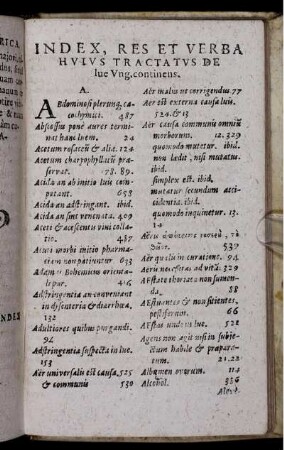 INDEX, RES ET VERBA
HVIVS TRACTATVS DE
lue Vng. continens.
A.
ABdominosi plerunq; ca-
cochymici. 487
Absces[us] ponè aures termi-
nat hanc luem. 24
Acetum rosatum & alia. 124
Acetum charyophyllatum præ-
seruat. 78. 89.
Acida an ab initio luis com-
petant. 653
Acida an adstringant. ibid.
Acida an sint venenata. 409
Aceti & acescentis vini colla-
tio. 487
Acuti morbi initio pharma-
tiam non patiuntur 653
Adamas Bohemicus orienta-
le par. 416
Adstringentia an conueniant
in dysenteria & diarrhœa.
632
Adultiores quibus purgandi.
94
Adstringentia suspecta in lue.
153
Aër vniuersalis est causa. 525
& communis 530
Aër in aliis n corrigendus. 77
Aër est externa causa luis.
524. & 13
Aër causa communis omnium
morborum. 12. 329
quomodo mutetur. ibid.
non lædit, nisi mutatus.
ibid.
simplex est. ibid.
mutatur secundum acci-
dentia. ibid.
quomodo inquinetur. 13.
14
Aëris
539
Aër qualis in curatione. 94.
Aëris necessitas ad vitam. 329
Æstate theriaca non sumen-
da. 28
Æstuantes & non sitientes,
pestiferum. 66
Æstus vnde in lue. 528
Agens non agit nisi in subje-
ctum habile & præpara-
tum. 21. 22
Albumen ouorum. 114
Alcohol. 386
Alexi-
RICA.
INDEX